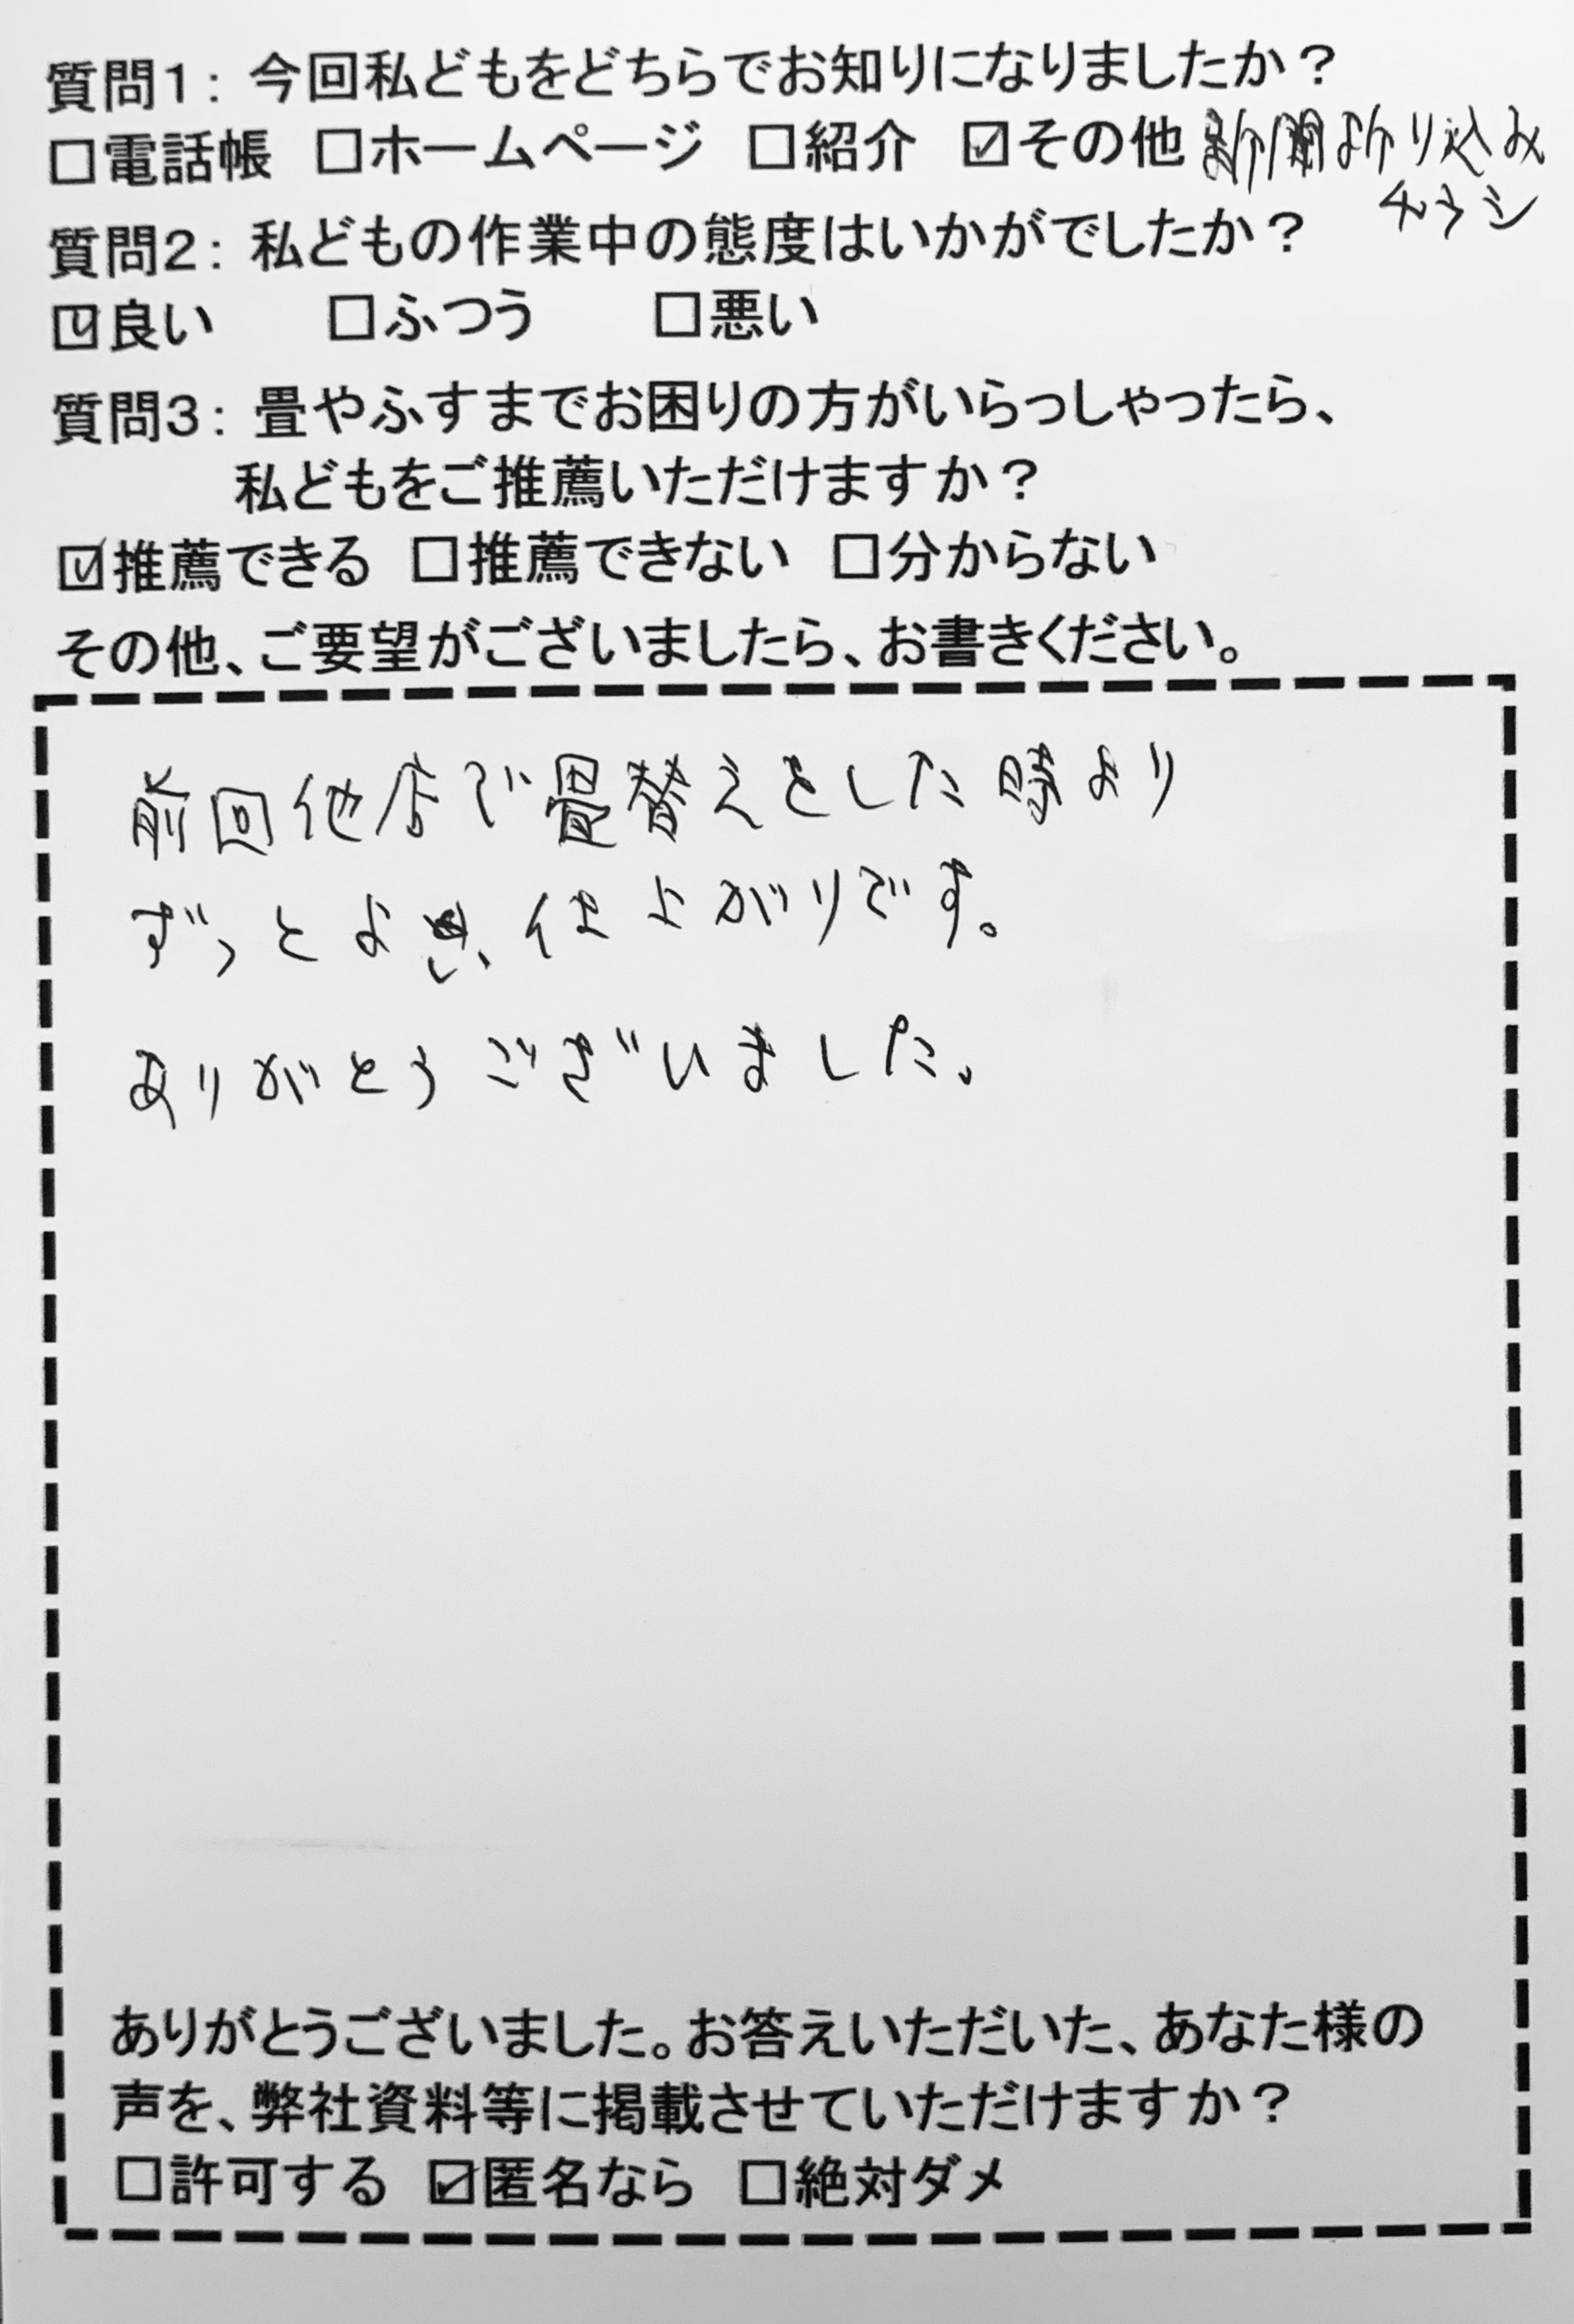 質問1：今回私どもをどちらでお知りになりましたか？
□電話帳 □ホームページ □紹介 ☑その他 新聞折り込み
チラシ
質問2：私どもの作業中の態度はいかがでしたか？
☑良い □ふつう □悪い
質問3：畳やふすまでお困りの方がいらっしゃったら、
私どもをご推薦いただけますか？
☑推薦できる □推薦できない □分からない
その他、ご要望がございましたら、お書きください。
前回他店で畳替えをした時より
ずっとよき仕上がりです。
ありがとうございました。
ありがとうございました。お答えいただいた、あなた様の
声を、弊社資料等に掲載させていただけますか？
□許可する ☑匿名なら □絶対ダメ